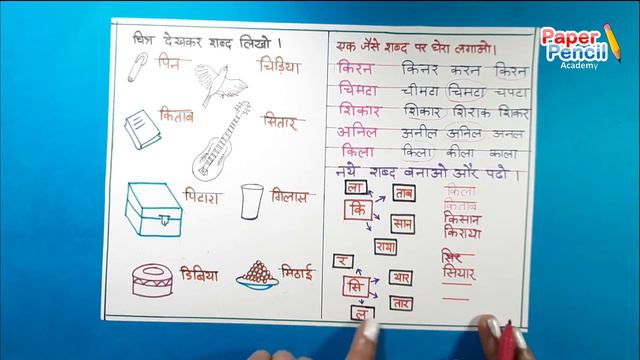 Paper
Pencil
Academy
चित्र देखकर शब्द लिखो ।
पिन
चिड़िया
किताब
सितार
पिटारा
गिलास
डिबिया
मिठाई
एक जैसे शब्द पर घेरा लगाओ।
किरन किनर करन किरन
चिमटा चीमटा चिमटा चपटा
शिकार शिकार शिराक शिकर
अनिल अनील अनिल अनल
किला किला कीला काला
नये शब्द बनाओ और पढो ।
ला ताब किला
कि किताब
सान किसान
राया किराया
र सिर
सि यार सियार
तार
ल